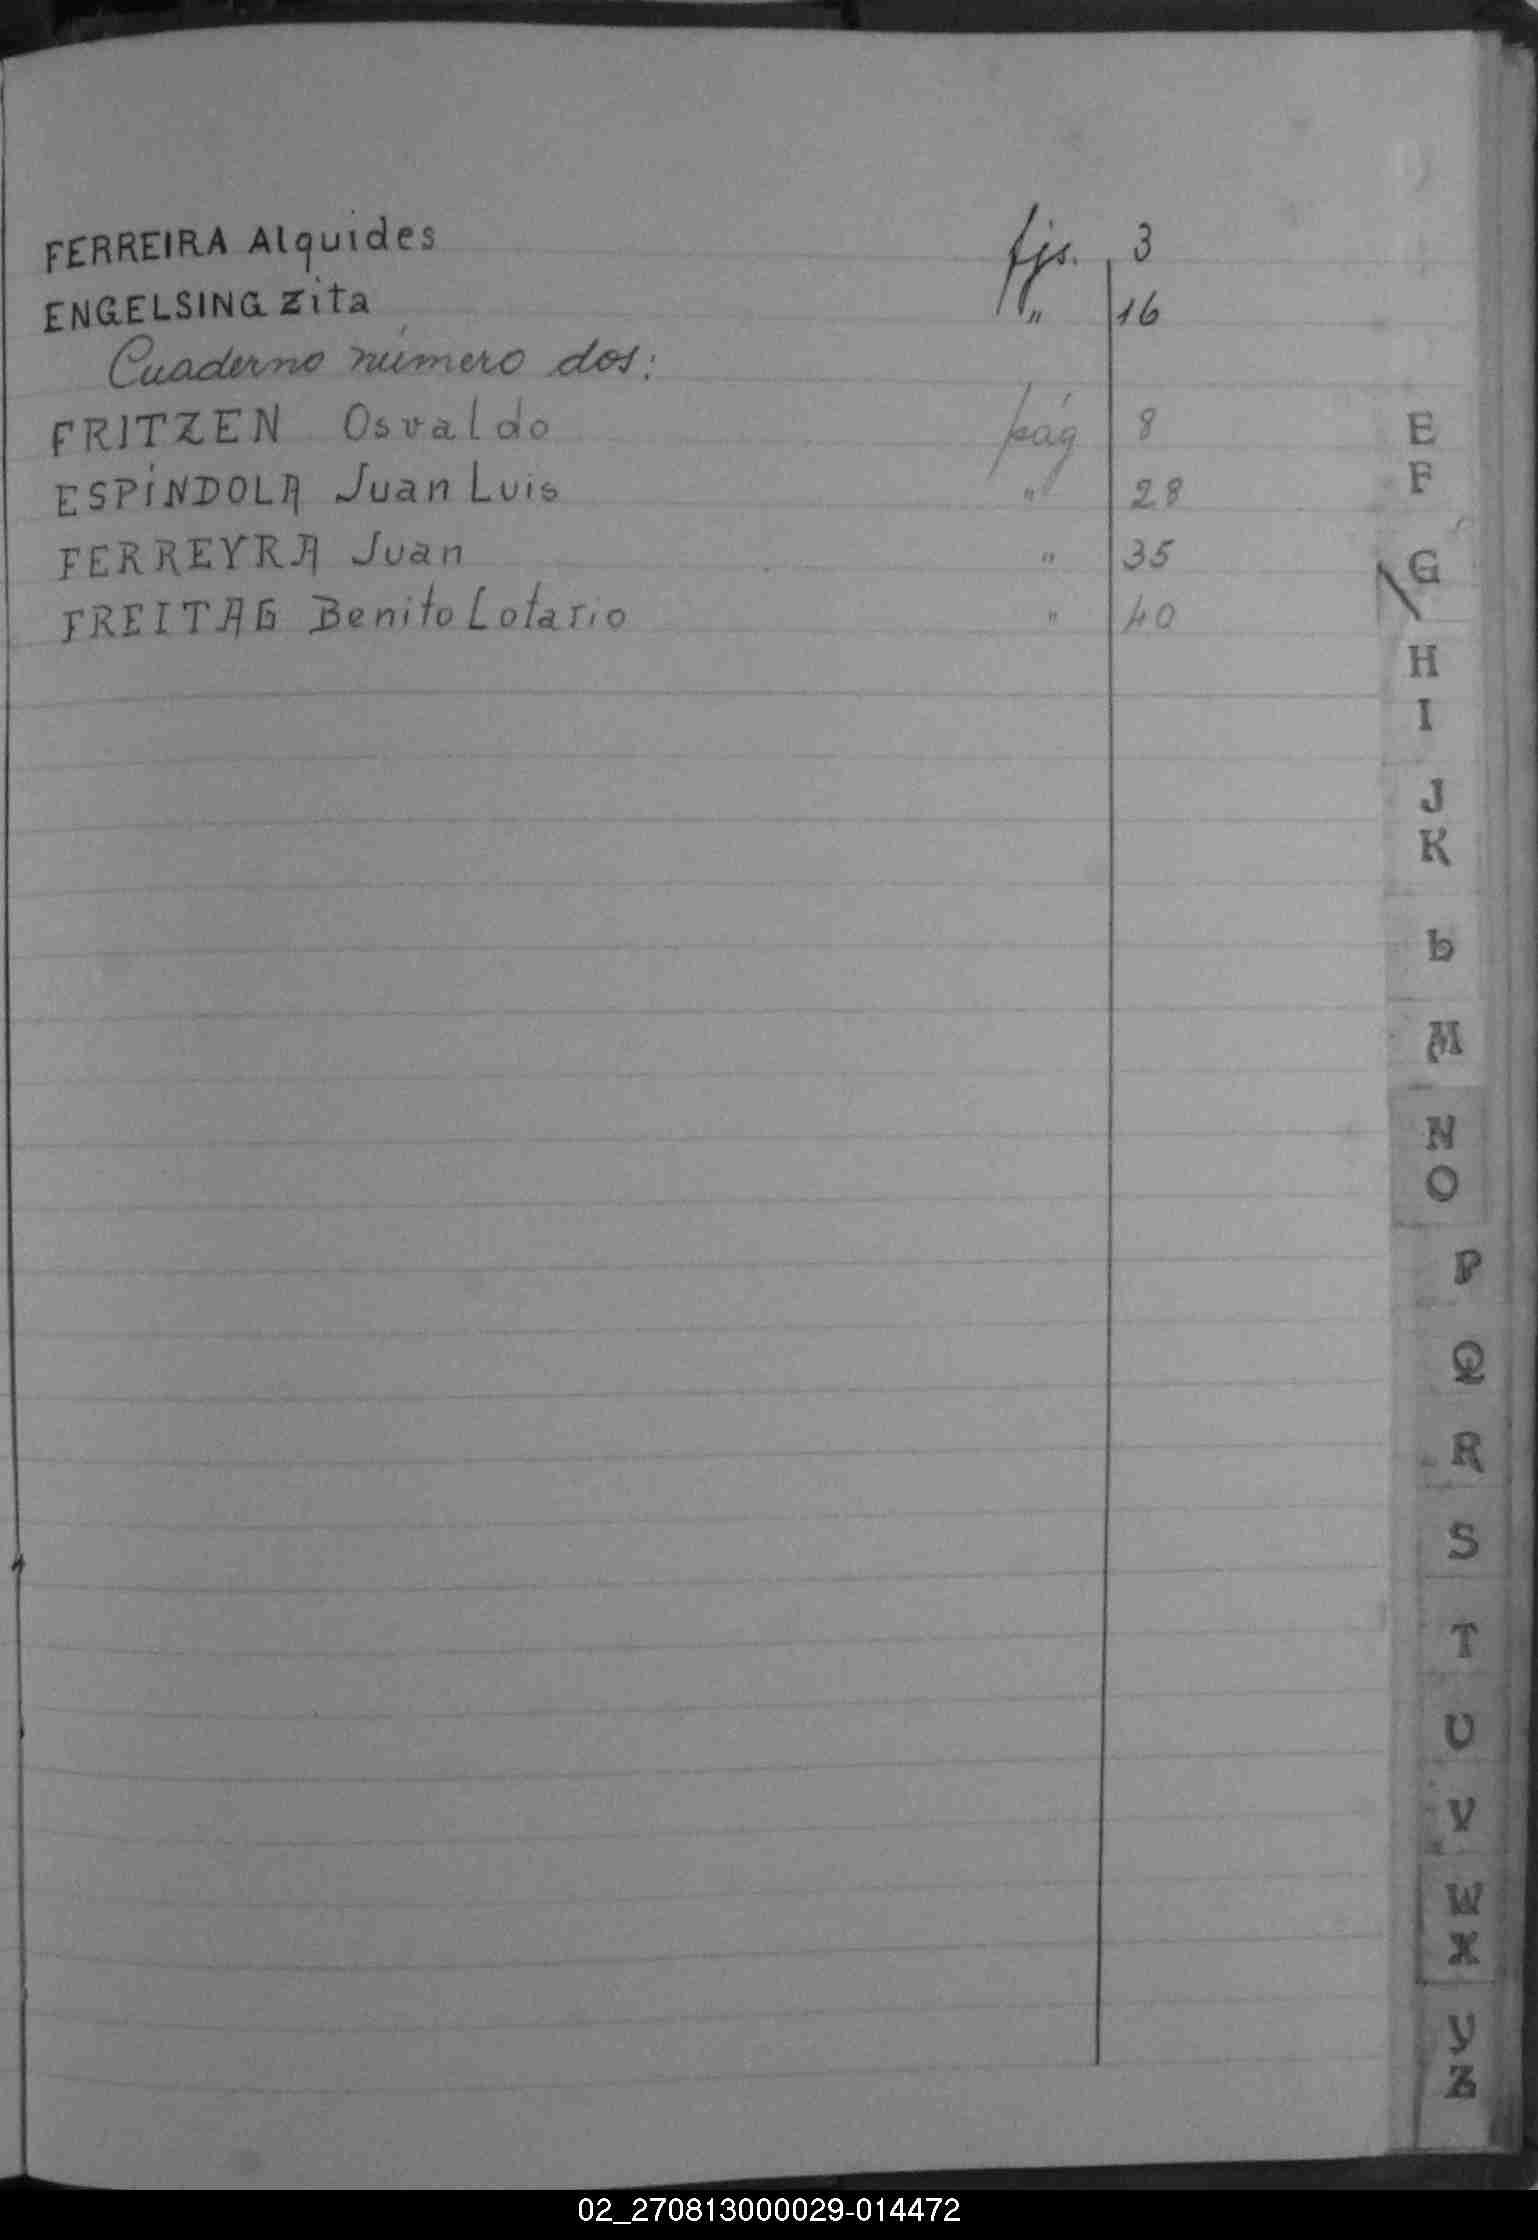 FERREIRA Alquides fjs. 3
ENGELSING Zita " 16
Cuaderno número dos:
FRITZEN Osvaldo pág 8
ESPÍNDOLA Juan Luis " 28
FERREYRA Juan " 35
FREITAG Benito Lotario " 40
E
F
G
H
I
J
K
L
M
N
O
P
Q
R
S
T
U
V
W
X
Y
Z
02_270813000029-014472